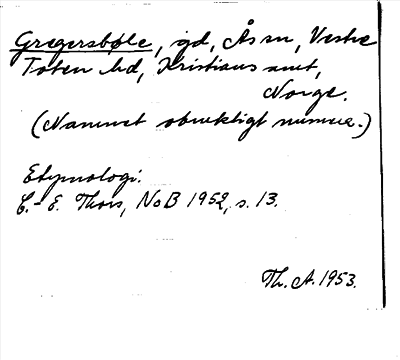 Gregersbøle, gd, Ås sn, Vestre
Toten hd, Kristians amt,
Norge.
(Namnet obrukligt numera.)
Etymologi:
C.-E. Thors, NoB 1952, s. 13.
Th. A. 1953.